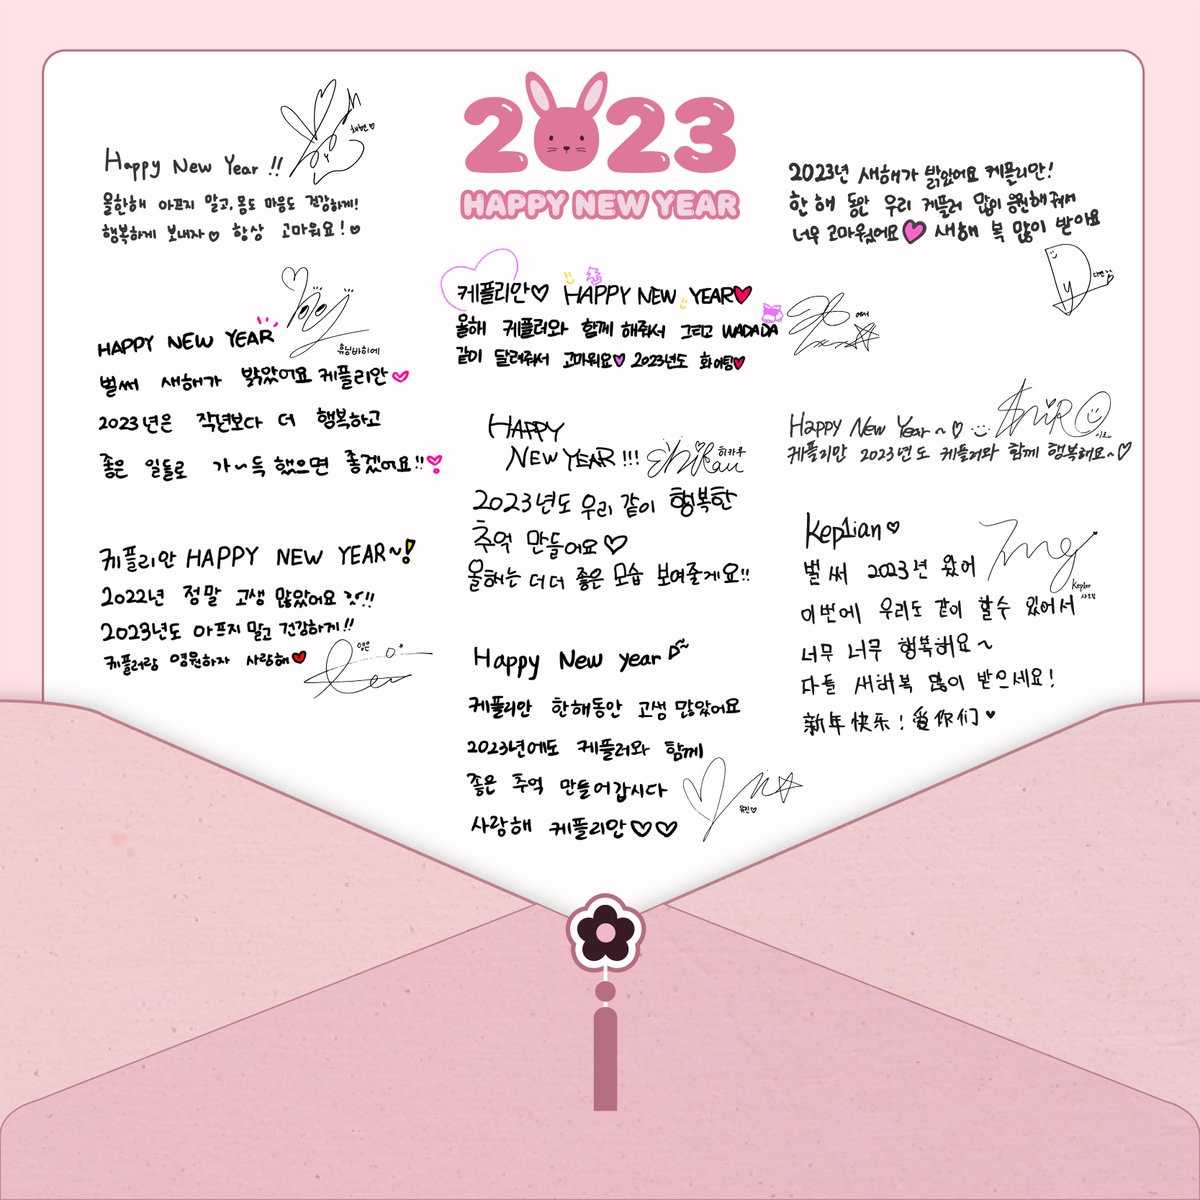 2023
HAPPY NEW YEAR
Happy New Year !!
채현♡
올한해 아프지 말고, 몸도 마음도 건강하게!
행복하게 보내자♡ 항상 고마워요!♡
HAPPY NEW YEAR
휴닝바히에
벌써 새해가 밝았어요 케플리안♡
2023년은 작년보다 더 행복하고
좋은 일들로 가~득 했으면 좋겠어요!!
케플리안 HAPPY NEW YEAR~!
2022년 정말 고생 많았어요 !!
2023년도 아프지 말고 건강하게!!
케플러랑 영원하자 사랑해♥
영은
케플리안♡ HAPPY NEW YEAR♥
올해 케플러와 함께 해줘서 그리고 WADADA
같이 달려줘서 고마워요♥ 2023년도 화이팅♥
예서
HAPPY
NEW YEAR !!!
히카루
2023년도 우리 같이 행복한
추억 만들어요♡
올해는 더 더 좋은 모습 보여줄게요!!
Happy New year
케플리안 한해동안 고생 많았어요
2023년에도 케플러와 함께
좋은 추억 만들어갑시다
사랑해 케플리안♡♡
유진♡
2023년 새해가 밝았어요 케플리안!
한 해 동안 우리 케플러 많이 응원해줘서
너무 고마웠어요♥ 새해 복 많이 받아요
다연
Happy New Year~♡
케플리안 2023년도 케플러와 함께 행복해요~♡
Kep1ian♡
벌써 2023년 왔어
Kep1er
샤오팅
이번에 우리도 같이 할수 있어서
너무 너무 행복해요~
다들 새해복 많이 받으세요!
新年快乐!爱你们♥